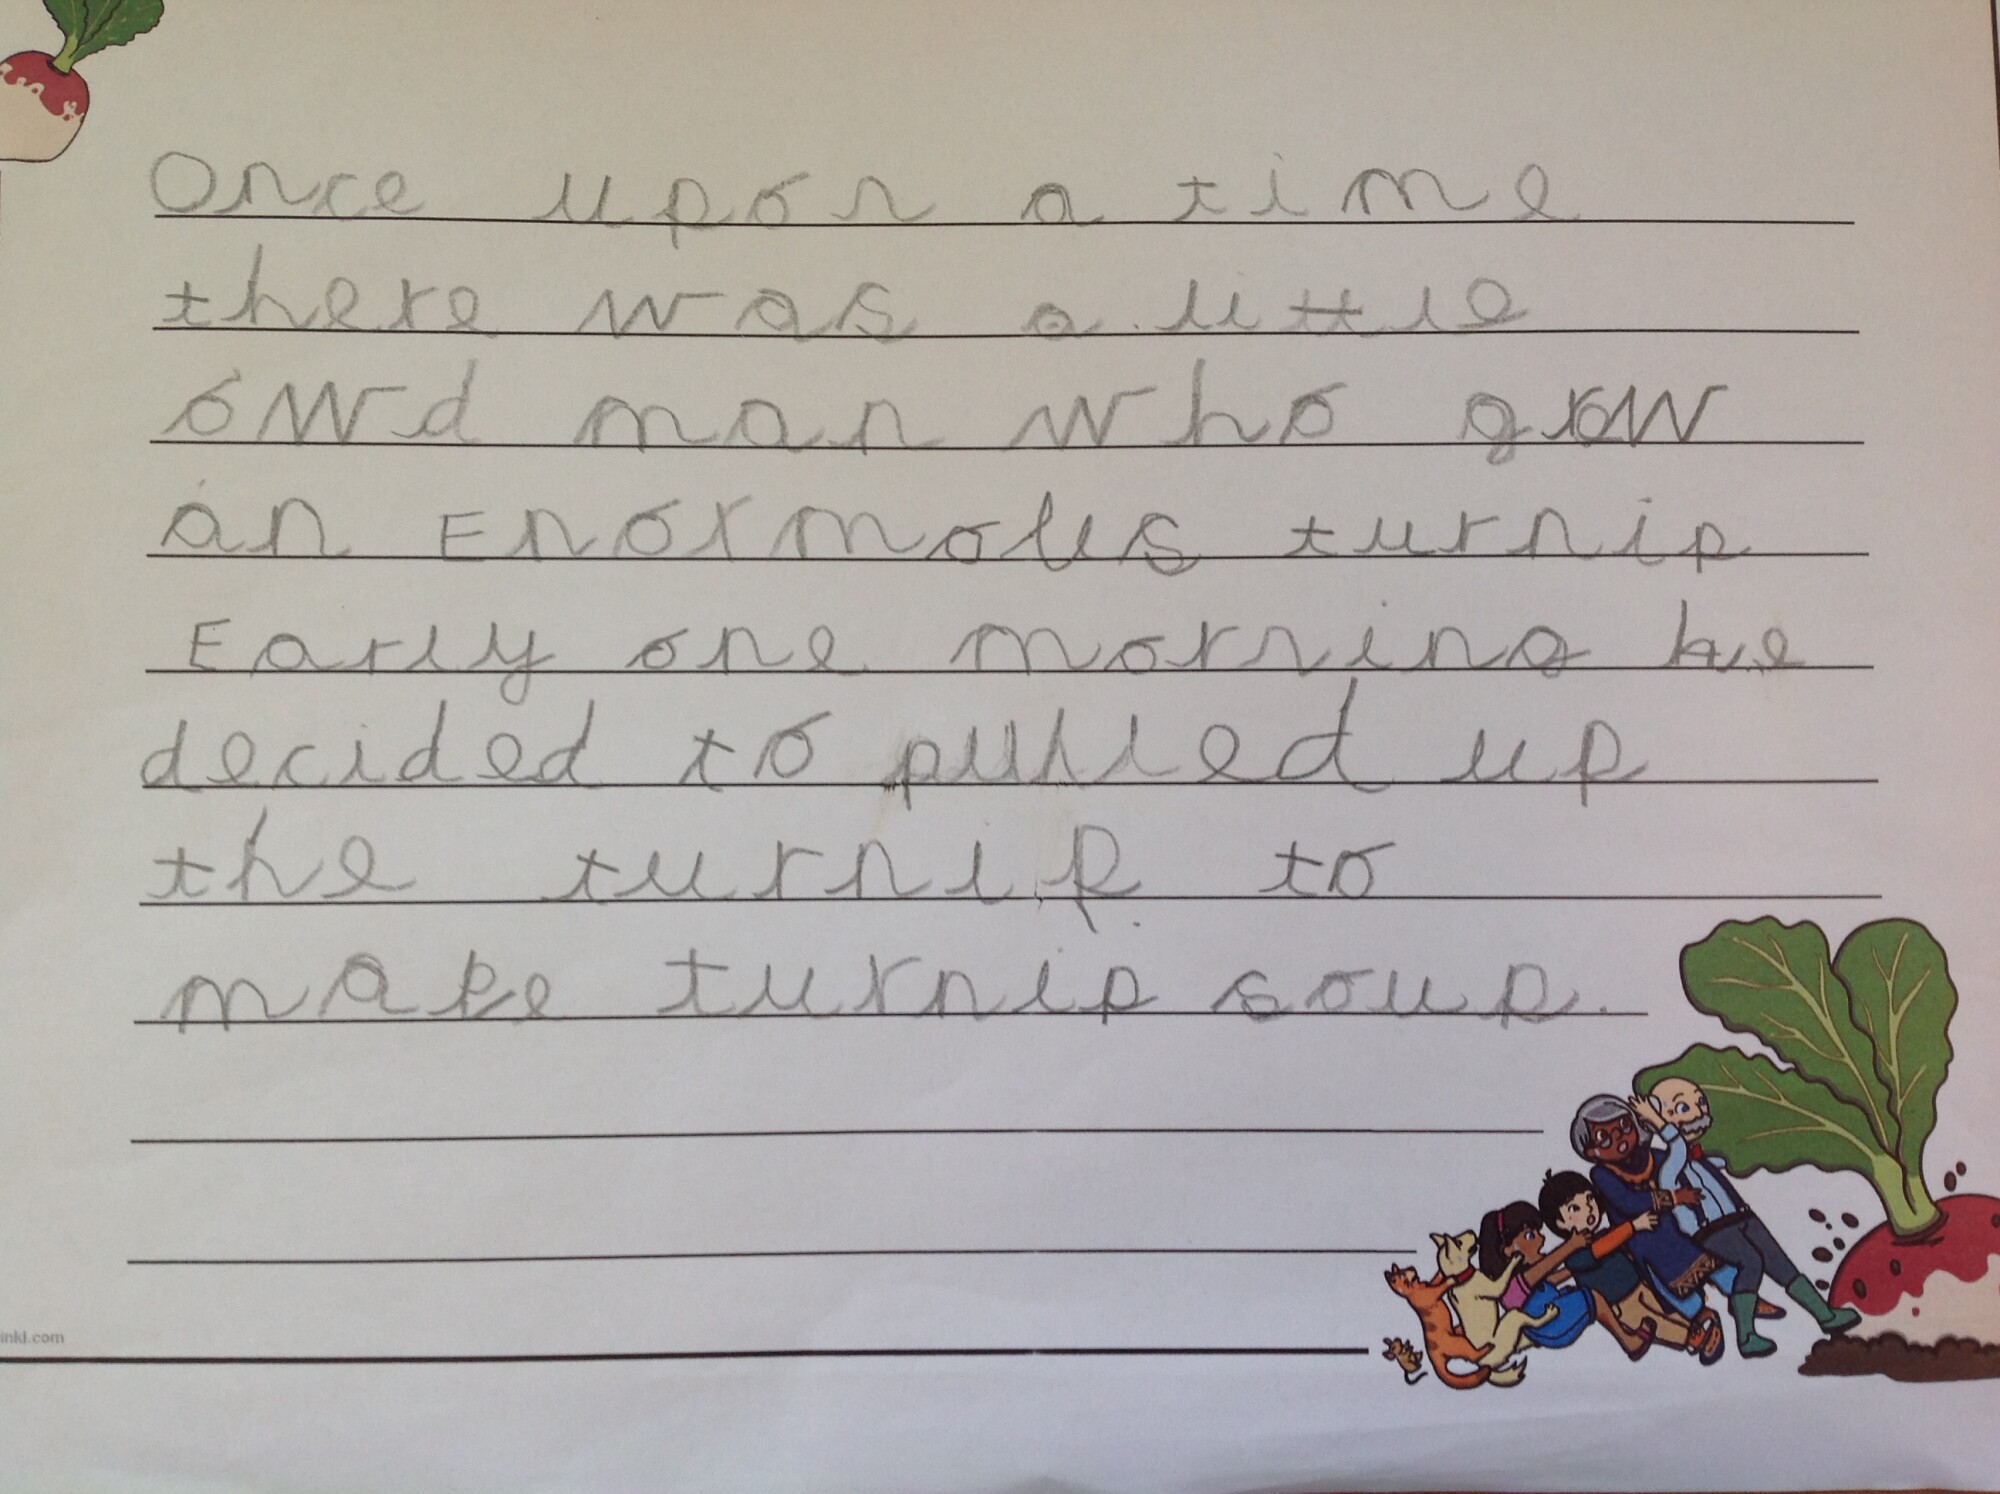 Once upon a time
there was a little
owd man who grow
an Enormous turnip
Early one morning he
decided to pulled up
the turnip to
make turnip soup.
inkl.com